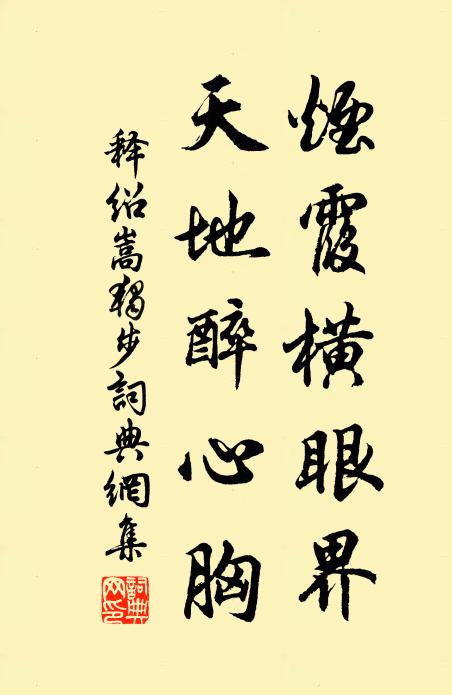 煙霞橫眼界
天地醉心胸
释绍嵩獨步詞典網集
詞典网印